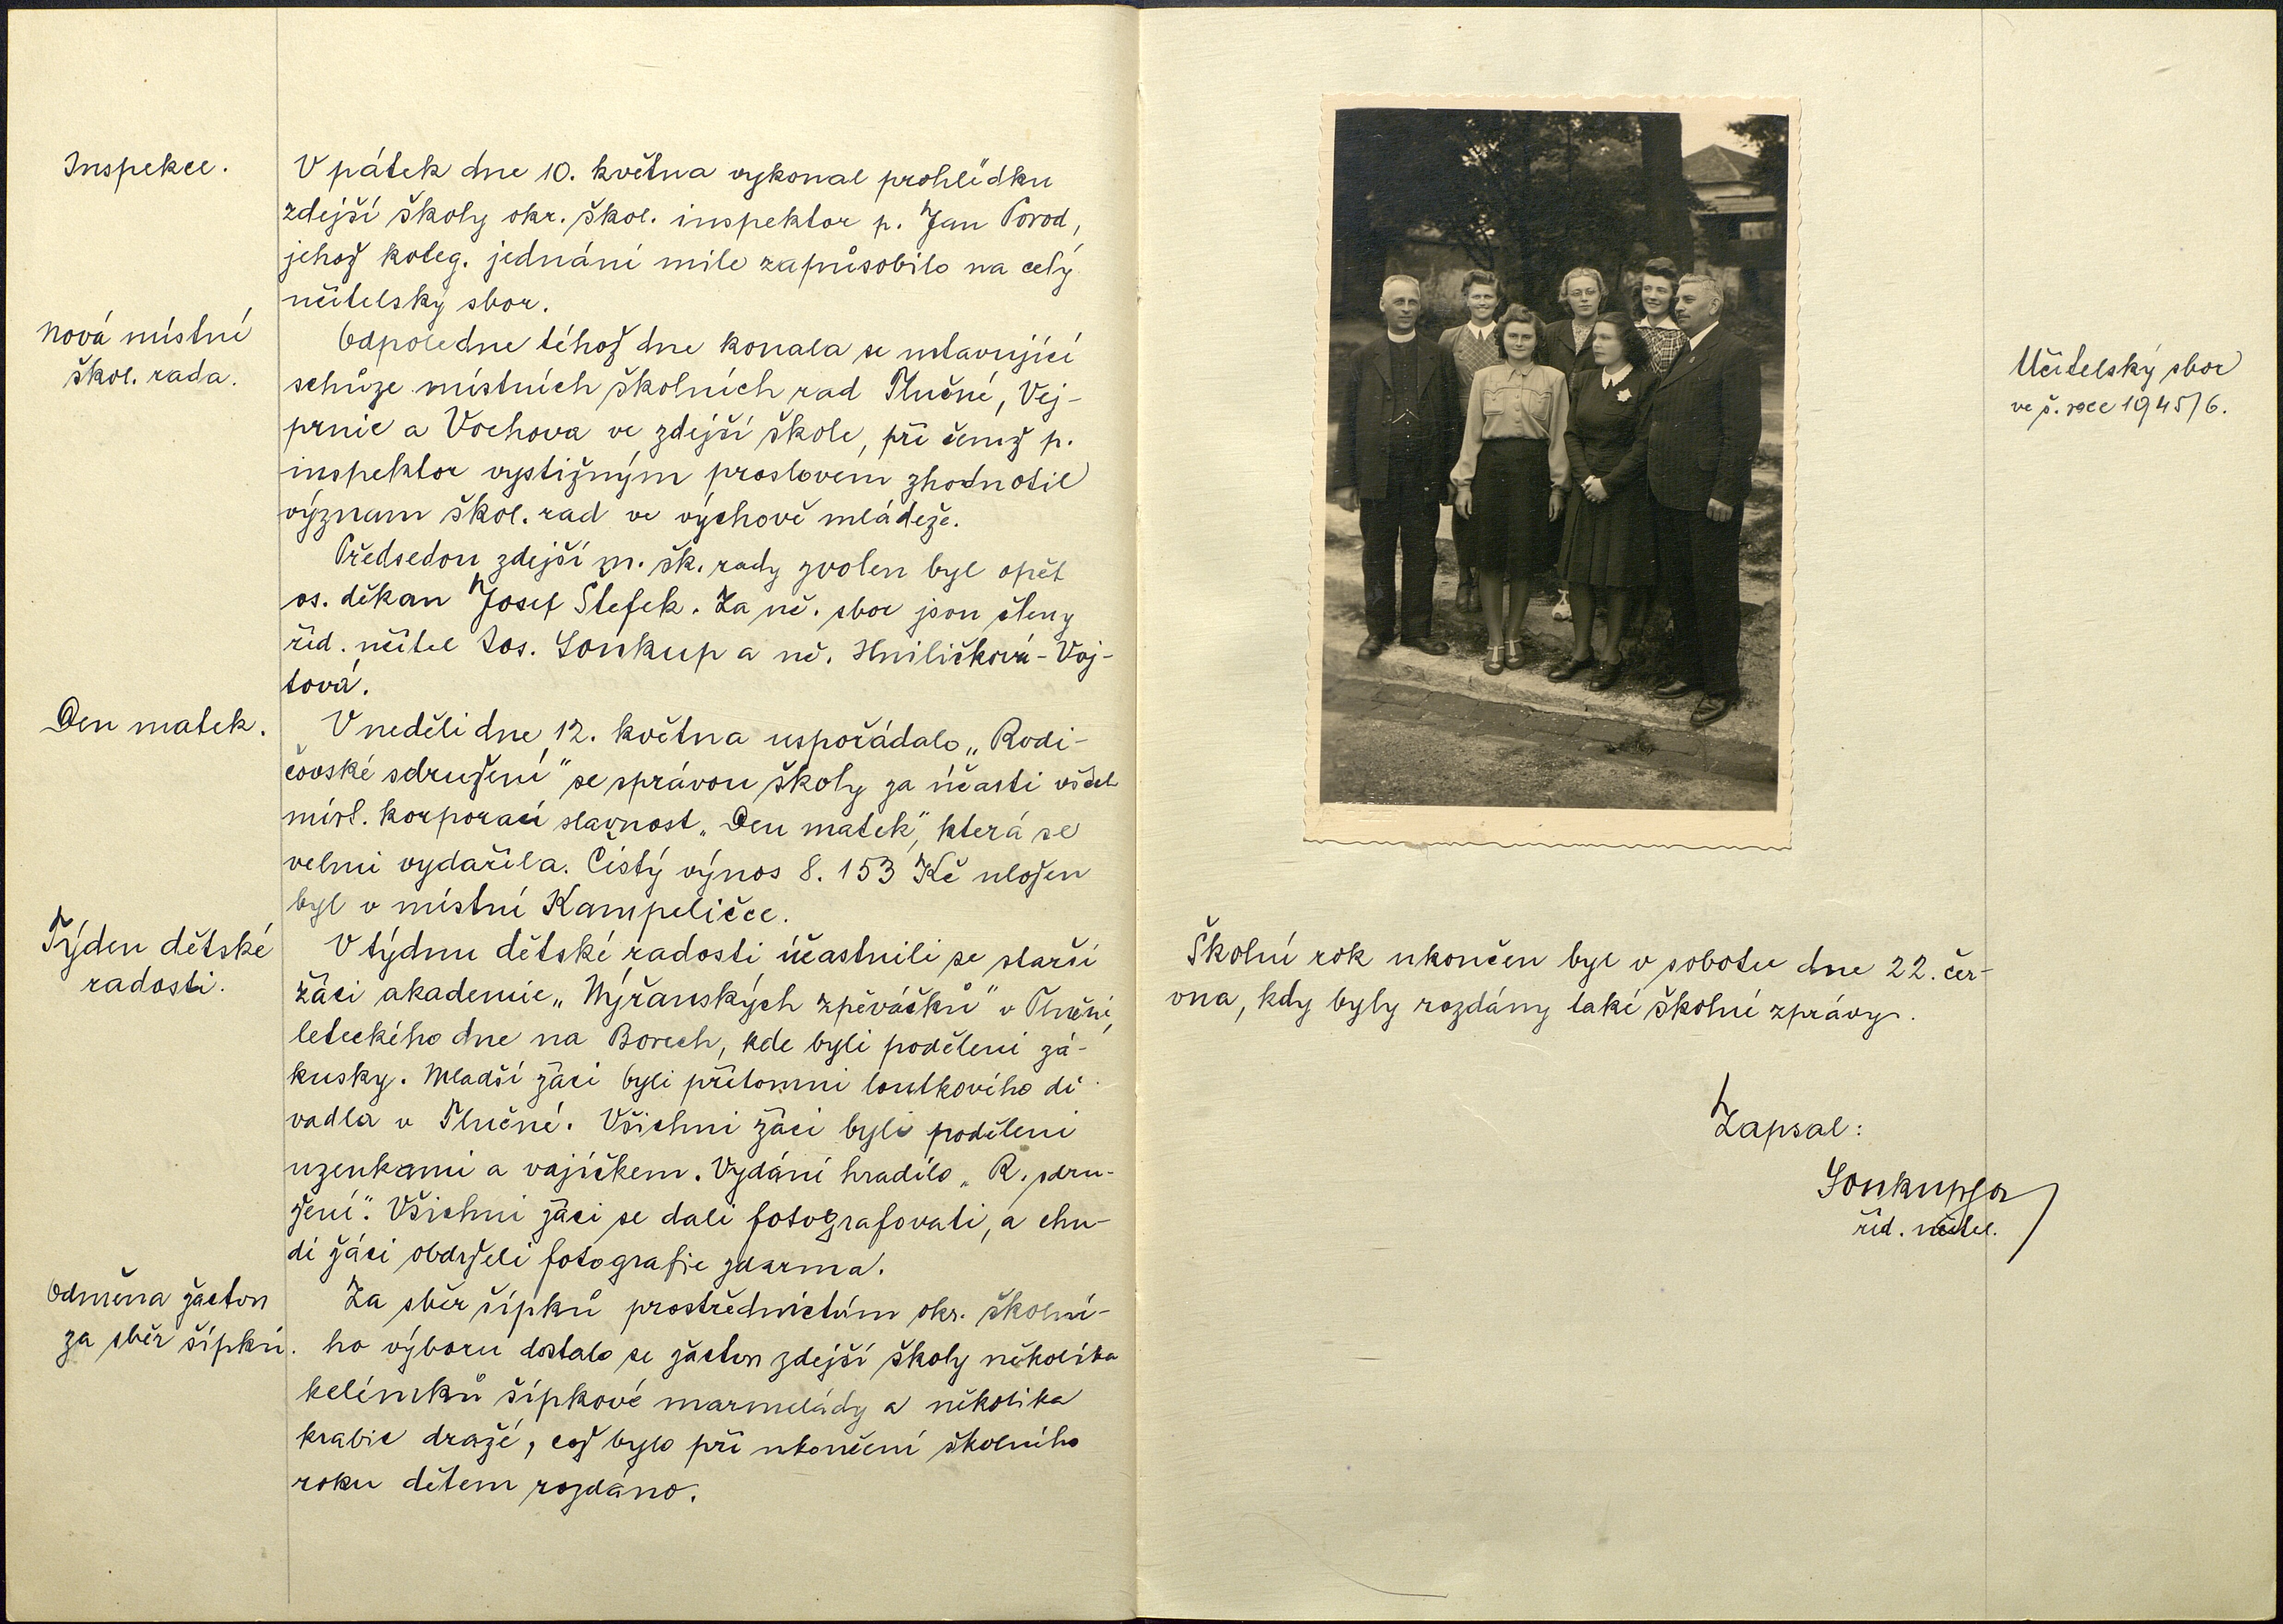 Inspekce.
V pátek dne 10. května vykonal prohlídku
zdejší školy okr. škol. inspektor p. Jan Porod,
jehož koleg. jednání mile zapůsobilo na celý
učitelský sbor.
Nová místní
škol. rada.
Odpoledne téhož dne konala se ustavující
schůze místních školních rad Tlučné, Vej-
prnic a Vochova ve zdejší škole, při čemž p.
inspektor vystižným proslovem zhodnotil
význam škol. rad ve výchově mládeže.
Předsedou zdejší m. šk. rady zvolen byl opět
os. děkan Josef Štefek. Za uč. sbor jsou členy
říd. učitel Jos. Soukup a uč. Hniličková-Voj-
tová.
Den matek.
V neděli dne 12. května uspořádalo „Rodi-
čovské sdružení" se správou školy za účasti všech
míst. korporací slavnost „Den matek", která se
velmi vydařila. Čistý výnos 8.153 Kč uložen
byl v místní Kampeličce.
Týden dětské
radosti.
V týdnu dětské radosti účastnili se starší
žáci akademie „Nýřanských zpěváčků" v Tlučné,
leteckého dne na Borech, kde byli poděleni zá-
kusky. Mladší žáci byli přítomni loutkového di-
vadla v Tlučné. Všichni žáci byli poděleni
uzenkami a vajíčkem. Vydání hradilo „R. sdru-
žení". Všichni žáci se dali fotografovati, a chu-
dí žáci obdrželi fotografie zdarma.
Odměna žactvu
za sběr šípků.
Za sběr šípků prostřednictvím okr. školní-
ho výboru dostalo se žactvu zdejší školy několika
kelímků šípkové marmelády a několika
krabic dražé, což bylo při ukončení školního
roku dětem rozdáno.
Učitelský sbor
ve š. roce 1945/6.
Školní rok ukončen byl v sobotu dne 22. čer-
vna, kdy byly rozdány také školní zprávy.
Zapsal:
SoukupJa
říd. učitel.